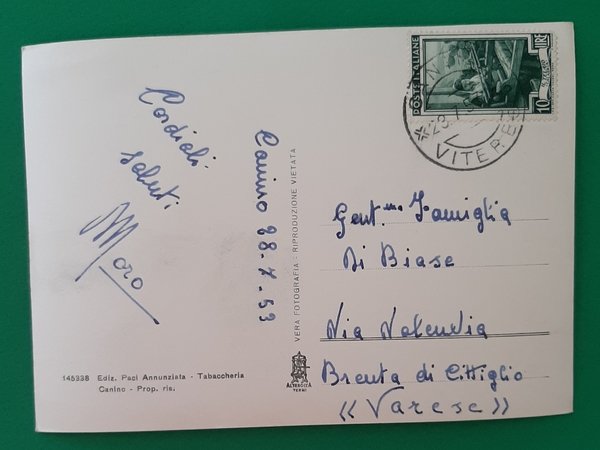 POSTE ITALIANE
LIRE 10
VITERBO
Cordiali
saluti
Moro
Canino 28-7-53
VERA FOTOGRAFIA - RIPRODUZIONE VIETATA
Gent.ma Famiglia
Di Biase
Via Valcuvia
Brenta di Cittiglio
«Varese»
145338 Ediz. Paci Annunziata - Tabaccheria
Canino - Prop. ris.
ALTEROCCA
TERNI